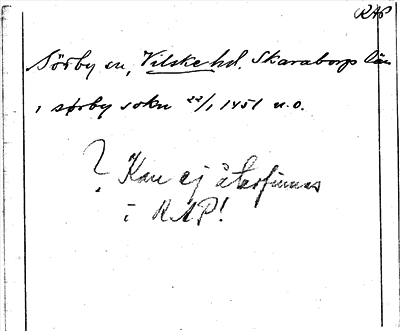 RAP
Sörby sn, Vilske hd. Skaraborgs län
i sørby sokn 22/1 1451 u.o.
? Kan ej återfinnas
i RAP!